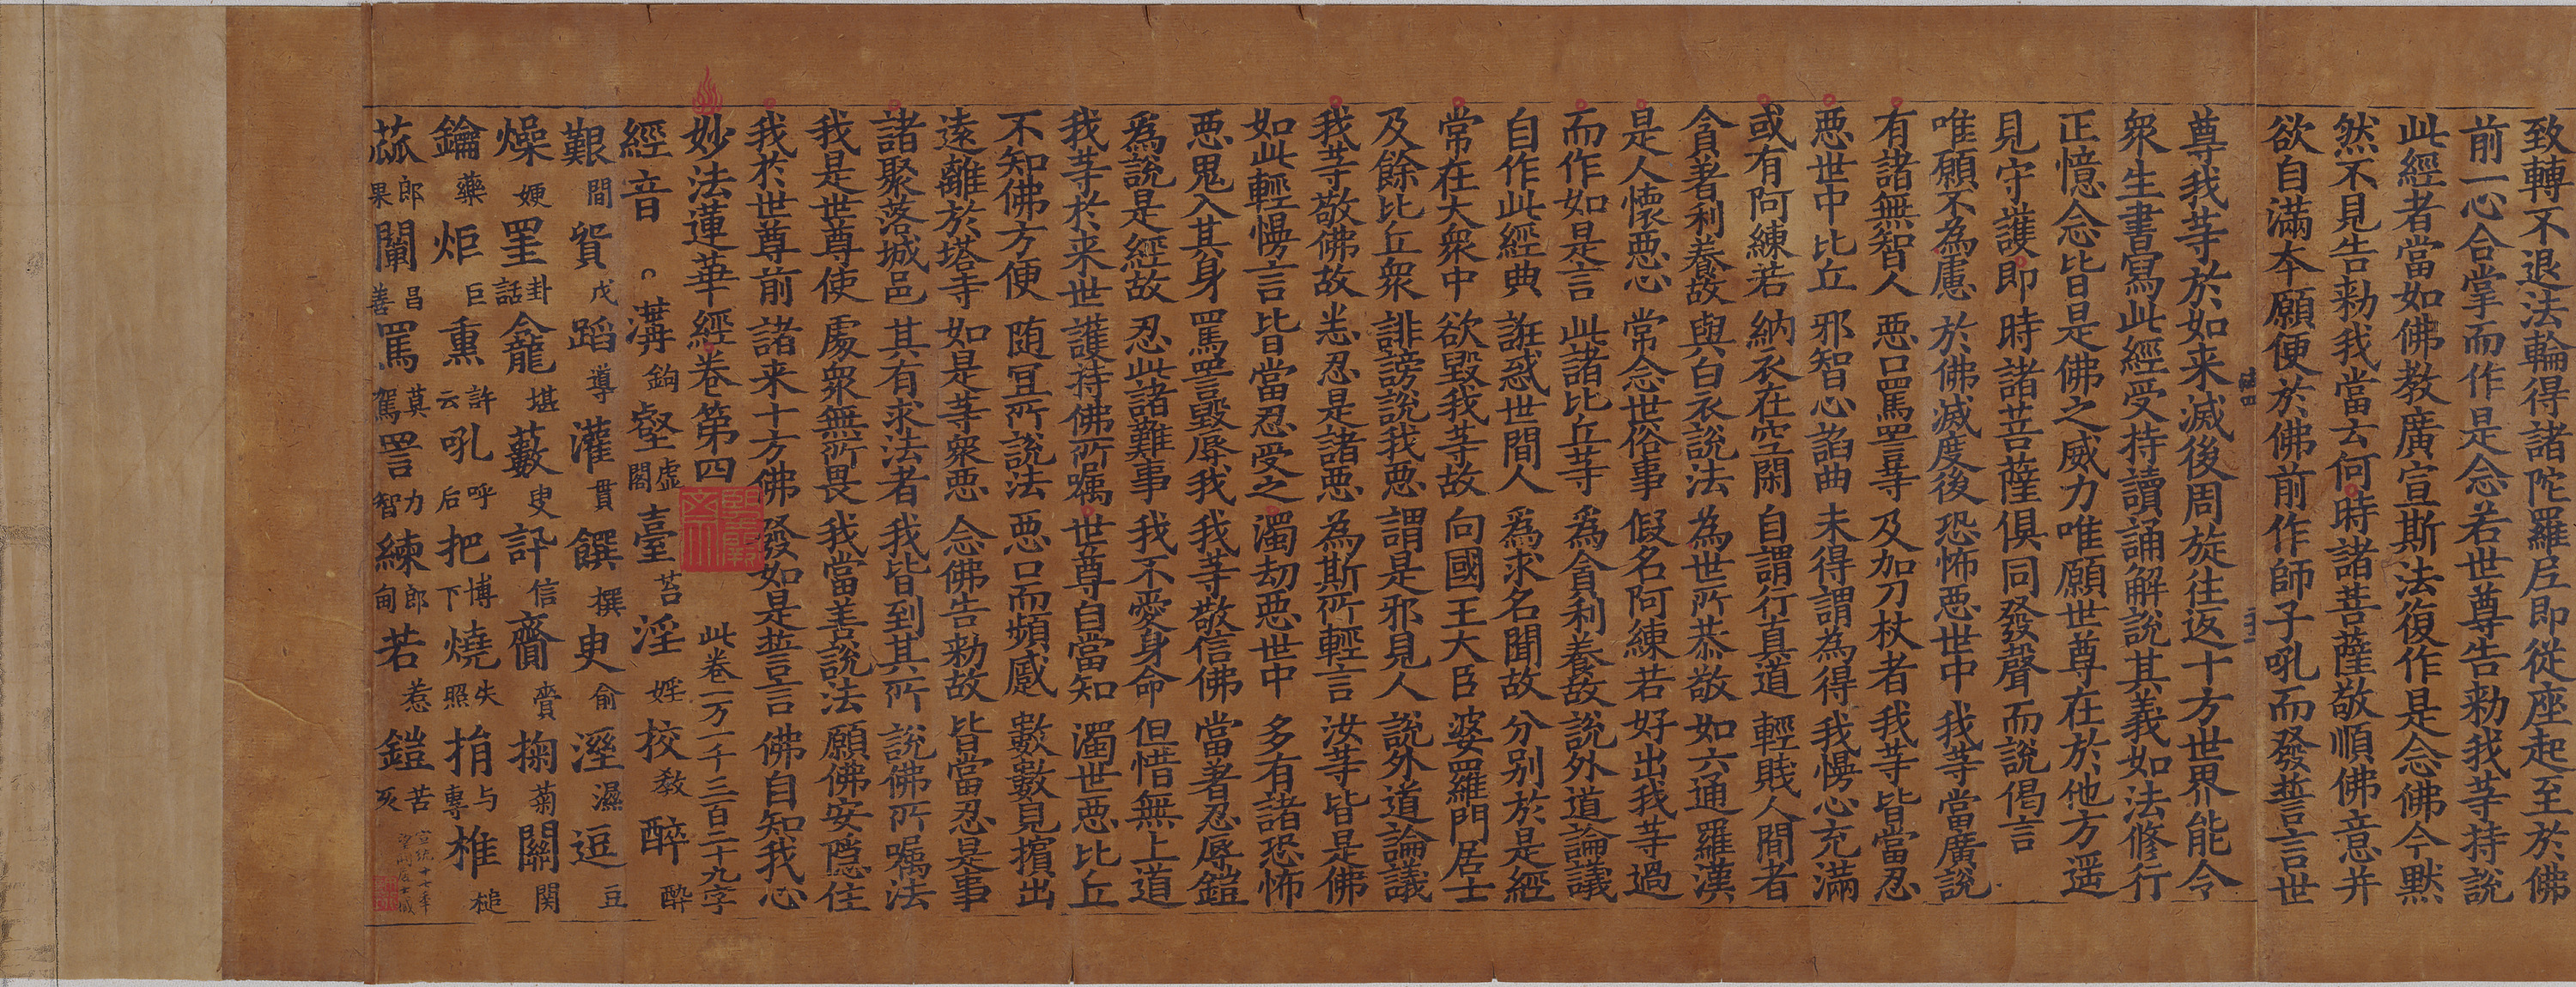 致轉不退法輪得諸陀羅尼即從座起至於佛
前一心合掌而作是念若世尊告勑我等持說
此經者當如佛教廣宣斯法復作是念佛今默
然不見告勑我當云何時諸菩薩敬順佛意并
欲自滿夲願便於佛前作師子吼而發誓言世
尊我等於如来滅後周旋往返十方世界能令
衆生書寫此經受持讀誦解說其義如法修行
正憶念皆是佛之威力唯願世尊在於他方遥
見守護即時諸菩薩俱同發聲而說偈言
唯願不為慮 於佛滅度後 恐怖惡世中 我等當廣說
有諸無智人 惡口罵詈等 及加刀杖者 我等皆當忍
惡世中比丘 邪智心諂曲 未得謂為得 我慢心充滿
或有阿練若 納衣在空閑 自謂行真道 輕賤人間者
貪著利養故 與白衣說法 為世所恭敬 如六通羅漢
是人懷惡心 常念世俗事 假名阿練若 好出我等過
而作如是言 此諸比丘等 為貪利養故 說外道論議
自作此經典 誑惑世間人 為求名聞故 分別於是經
常在大衆中 欲毀我等故 向國王大臣 婆羅門居士
及餘比丘衆 誹謗說我惡 謂是邪見人 說外道論議
我等敬佛故 悉忍是諸惡 為斯所輕言 汝等皆是佛
如此輕慢言 皆當忍受之 濁劫惡世中 多有諸恐怖
惡鬼入其身 罵詈毀辱我 我等敬信佛 當著忍辱鎧
為說是經故 忍此諸難事 我不愛身命 但惜無上道
我等於来世 護持佛所嘱 世尊自當知 濁世惡比丘
不知佛方便 随宜所說法 惡口而頻蹙 數數見擯出
遠離於塔寺 如是等衆惡 念佛告勑故 皆當忍是事
諸聚落城邑 其有求法者 我皆到其所 說佛所嘱法
我是世尊使 處衆無所畏 我當善說法 願佛安隱住
我於世尊前 諸来十方佛 發如是誓言 佛自知我心
妙法蓮華經卷第四 此卷一万一千三百二十九字
經音 溝鈎 壑虛閣 臺苔 淫婬 挍教 醉酔
艱間 貿戊 蹈導 灌貫 饌撰 叓俞 溼濕 逗豆
燥㛐 罣卦話 龕堪 藪叟 訊信 齎賷 掬菊 關関
鑰藥 炬巨 熏許云 吼呼后 把博下 燒失照 捐与專 椎槌
蓏郎果 闡昌善 罵莫駕 詈力智 練郎甸 若惹 鎧苦亥
宣統十七年